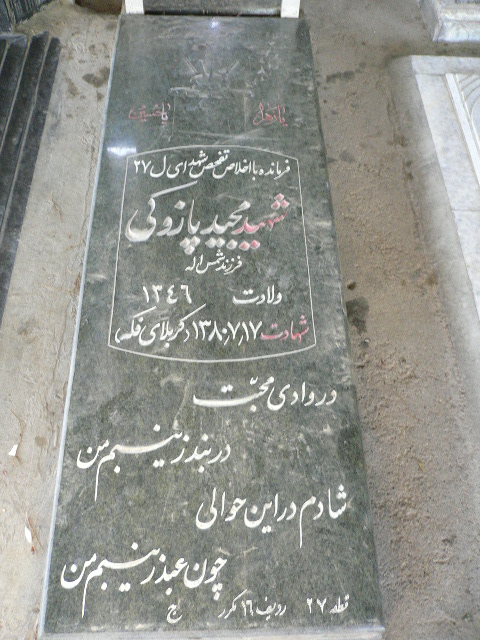 یا زهرا یا حسین
فرمانده با اخلاص تفحص شهدای ل ۲۷
شهید مجید پازوکی
فرزند شمس اله
ولادت ۱۳۴۶
شهادت ۱۳۸۰٫۷٫۱۷ کربلای فکه
در وادی محبّت
در بند زینبم من
شادم در این حوالی
چون عبد زینبم من
قطعه ۲۷ ردیف ۱۶ مکرر ج